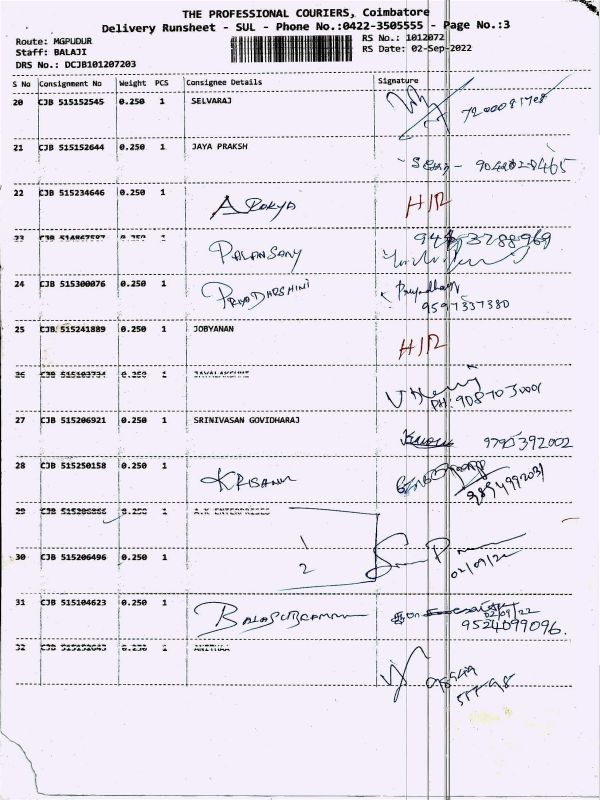 THE PROFESSIONAL COURIERS, Coimbatore
Delivery Runsheet - SUL - Phone No.:0422-3505555 - Page No.:3
Route: MGPUDUR
Staff: BALAJI
DRS No.: DCJB101207203
RS No.: 1012072
RS Date: 02-Sep-2022
S No Consignment No Weight PCS Consignee Details Signature
20 CJB 515152545 0.250 1 SELVARAJ
21 CJB 515152644 0.250 1 JAYA PRAKSH
22 CJB 515234646 0.250 1 AROKYA H/R
23 CJB 0.250 1 PALANSAMY
24 CJB 515300076 0.250 1 PRIYADARSHINI 9597337380
25 CJB 515241889 0.250 1 JOBYANAN H/R
26 CJB 515103734 0.250 1 JAYALAKSHMI
PH: 9087030001
27 CJB 515206921 0.250 1 SRINIVASAN GOVIDHARAJ 9790392002
28 CJB 515250158 0.250 1 KRISANU
29 CJB 515206866 0.250 1 A.K ENTERPRESES
1
30 CJB 515206496 0.250 1 2 02/09/22
31 CJB 515104623 0.250 1 02/09/22
9524099096.
32 CJB 0.250 1 ANITHAA